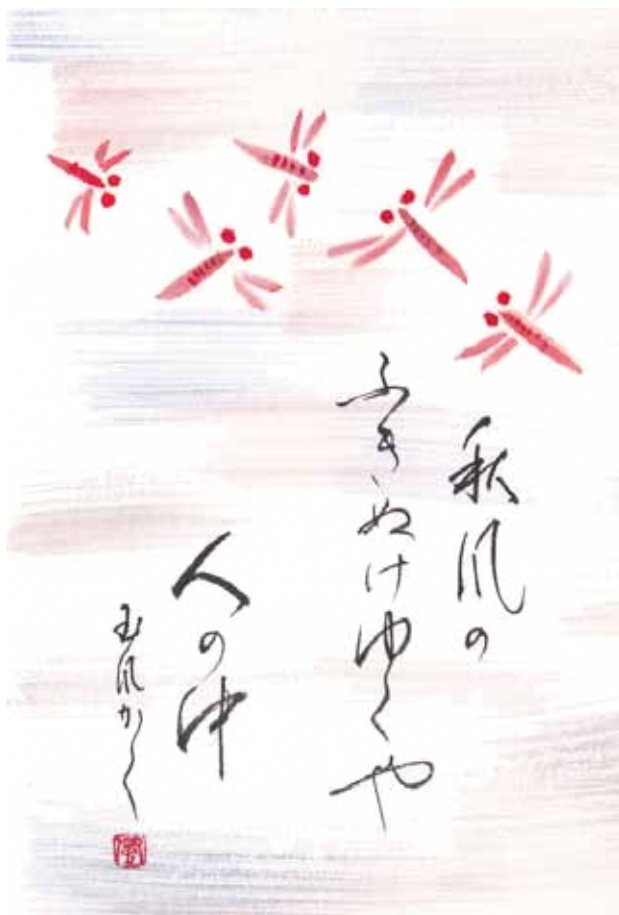 秋風の
ふきぬけゆくや
人の中
玉風かく